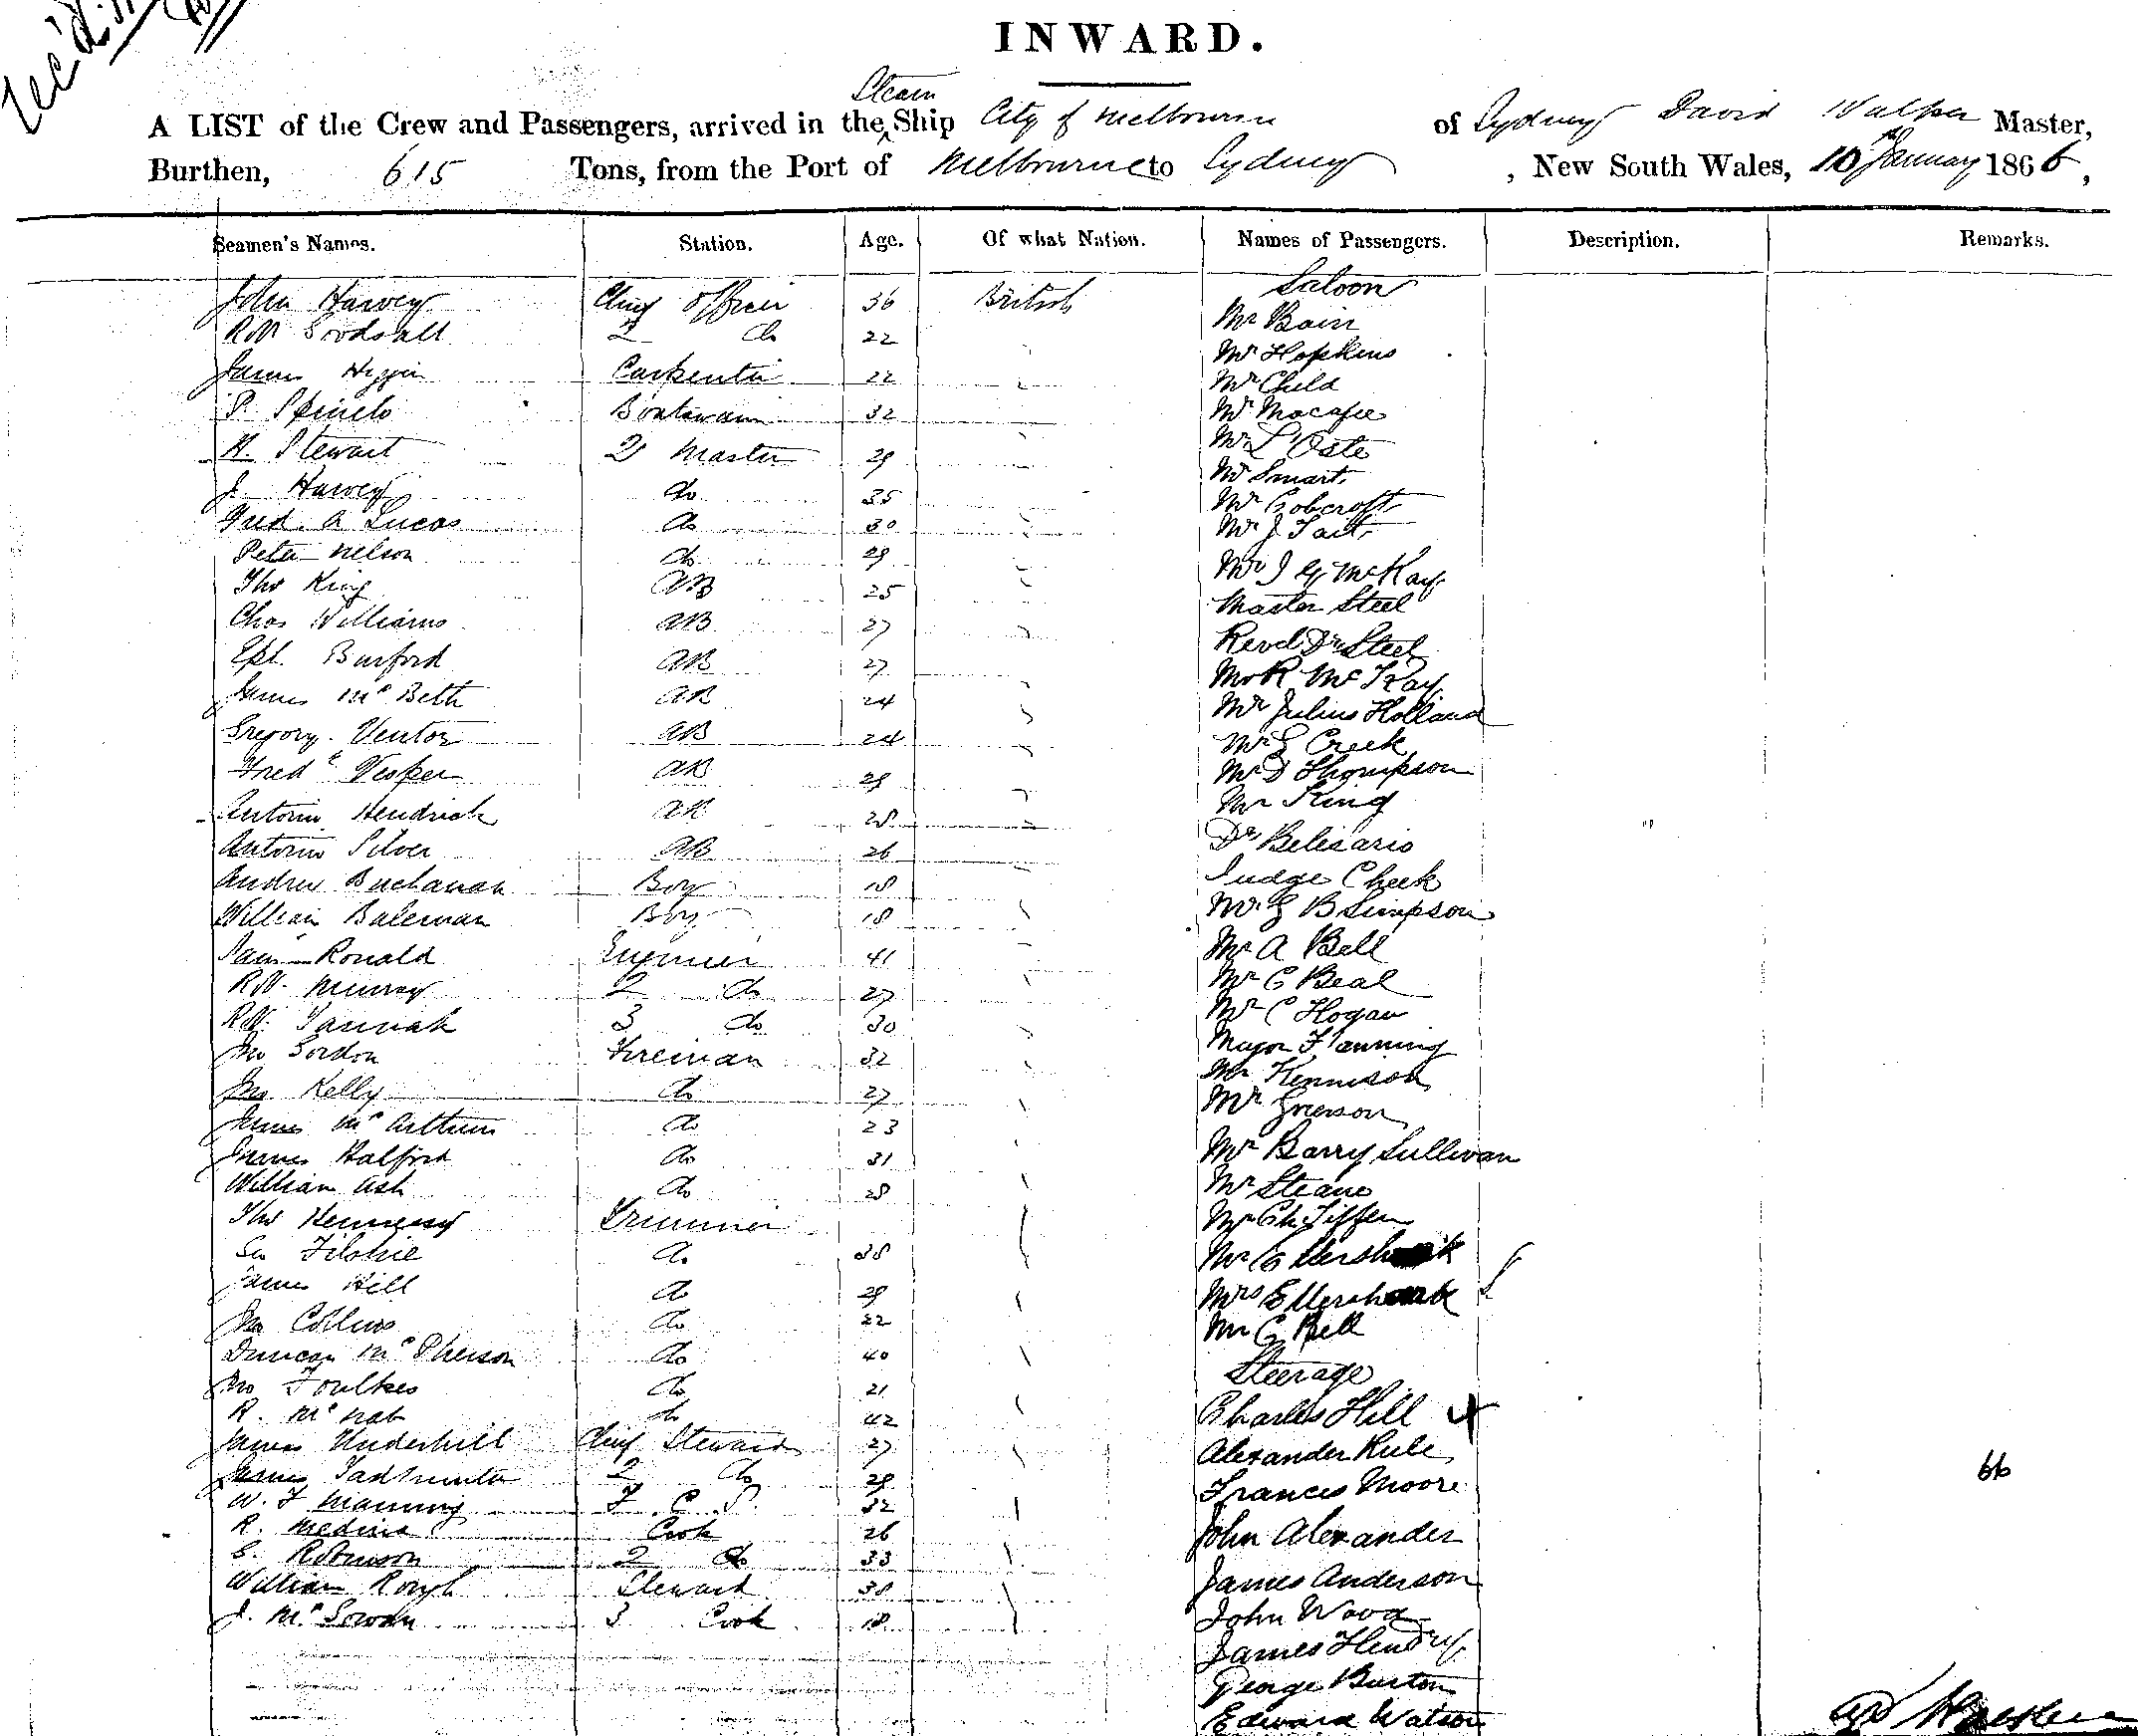 INWARD.
A LIST of the Crew and Passengers, arrived in the Steam Ship City of Melbourne of Sydney David Walker Master,
Burthen, 615 Tons, from the Port of Melbourne to Sydney, New South Wales, 10 January 1866,
Seamen's Names. Station. Age. Of what Nation. Names of Passengers. Description. Remarks.
Saloon
John Harvey Chief Officer 36 British
Mr Bain
Goodsall 2 do 22
Mr Hopkins
James Higgin Carpenter 22
Mr Child
P. Boatswain 32
Mr Macafee
H. Stewart 2 Master 29
Mr L'Oste
J. Harvey do 35
Mr Smart
Fred. A Lucas do 30
Mr Cobcroft
Peter Nelson do 29
Mr J Tait
Thos King AB 25
Mr J G McKay
Chas Williams AB 27
Master Steel
Burford AB 27
Revd Dr Steel
James McBeth AB 24
Mr R McKay
Gregory Ventor AB 24
Mr Julius Holland
Fredk Vesper AB 29
Mr G Creek
Antonio Hendrick AB 28
Mr D Thompson
Antonio Silver AB 26
Mr King
Andrew Buchanan Boy 18
Dr Belisario
William Bateman Boy 18
Judge Cheek
Ronald Engineer 41
Mr G B Simpson
Murray 2 do 27
Mr A Bell
Tannak 3 do 30
Mr C Beal
Jno Gordon Fireman 32
Mr C Hogan
Jno Kelly do 27
Major Fanning
James McArthur do 23
Mr Kennison
James Halford do 31
Mr Grierson
William Ash do 28
Mr Barry Sullivan
Thos Hennessy Trimmer
Mr Steane
Geo do 38
Mr Ch Tiffen
James Hill do 29
Mr
Jno Collins do 22
Mrs
Duncan McPherson do 40
Mr G Bell
Jno Foulkes do 21
Steerage
R. McNab do 42
Charles Hill 4
James Underhill Chief Steward 27
Alexander Rule 66
James 2 do 29
Frances Moore
W. F Manning F C S. 32
John Alexander
R. Medina Cook 26
E. Robinson 2 do 33
James Anderson
William Rough Steward 38
John Wood
J. McGowan 3 Cook 18
James Hendry
George Burton
Edward Watson